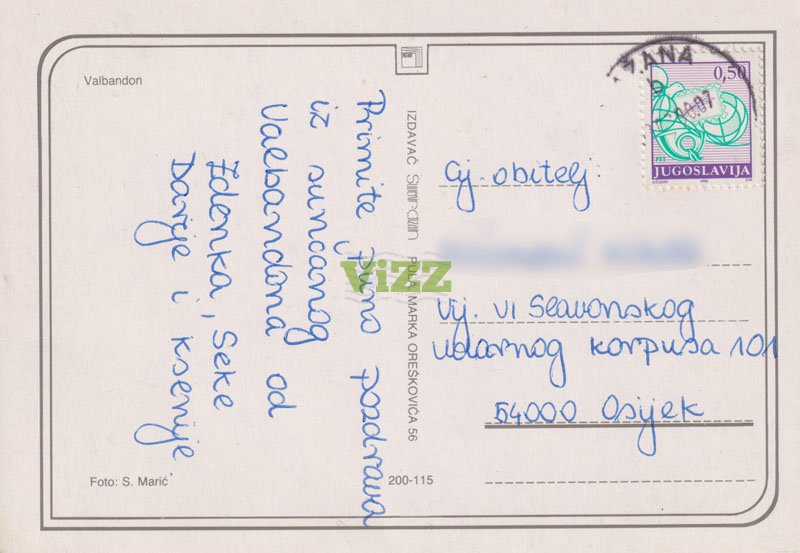 Valbandon
Primite puno pozdrava
iz sunčanog
Valbandona od
Zdenka, Seke
Darije i Ksenije.
Foto: S. Marić
200-115
IZDAVAČ PULA MARKA OREŠKOVIĆA 56
VIZZ
ŽANA
0,50
PTT
JUGOSLAVIJA
Cj. obitelj:
Vij. VI Slavonskog
udarnog korpusa 101
54000 Osijek